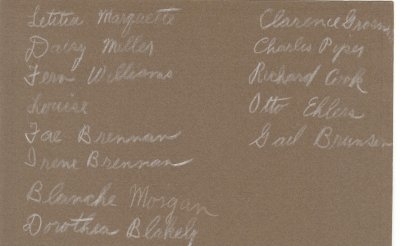 Letitia Marquette
Daisy Miller
Fern Williams
Louise
Fae Brennan
Irene Brennan
Blanche Morgan
Dorothea Blakely
Clarence
Charles Piper
Richard Cook
Otto Ehlers
Gail Brunsen